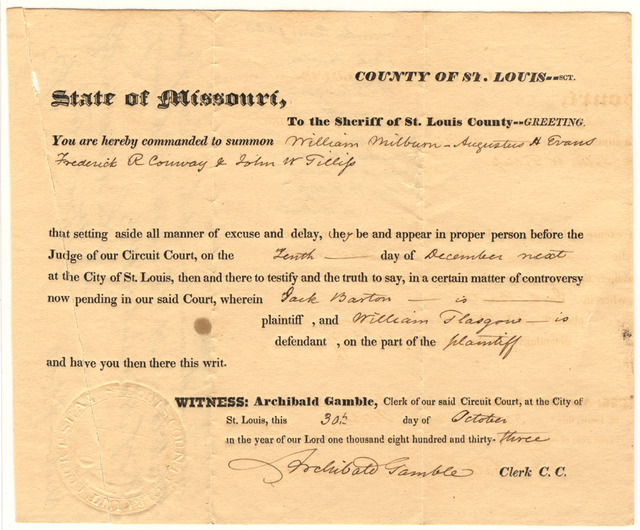 COUNTY OF St. LOUIS--SCT.
State of Missouri,
To the Sheriff of St. Louis County--GREETING.
You are hereby commanded to summon William Milburn - Augustus H Evans
Frederick R Conway & John W Tilliss
that setting aside all manner of excuse and delay, they be and appear in proper person before the
Judge of our Circuit Court, on the Tenth — day of December next
at the City of St. Louis, then and there to testify and the truth to say, in a certain matter of controversy
now pending in our said Court, wherein Jack Barton — is —
plaintiff , and William Glasgow — is
defendant , on the part of the plaintiff
and have you then there this writ.
WITNESS: Archibald Gamble, Clerk of our said Circuit Court, at the City of
St. Louis, this 30th day of October
in the year of our Lord one thousand eight hundred and thirty-three
Archibald Gamble Clerk C. C.